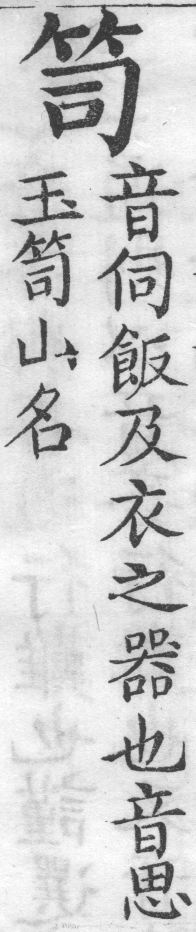 笥
音伺飯及衣之器也音思
玉笥山名